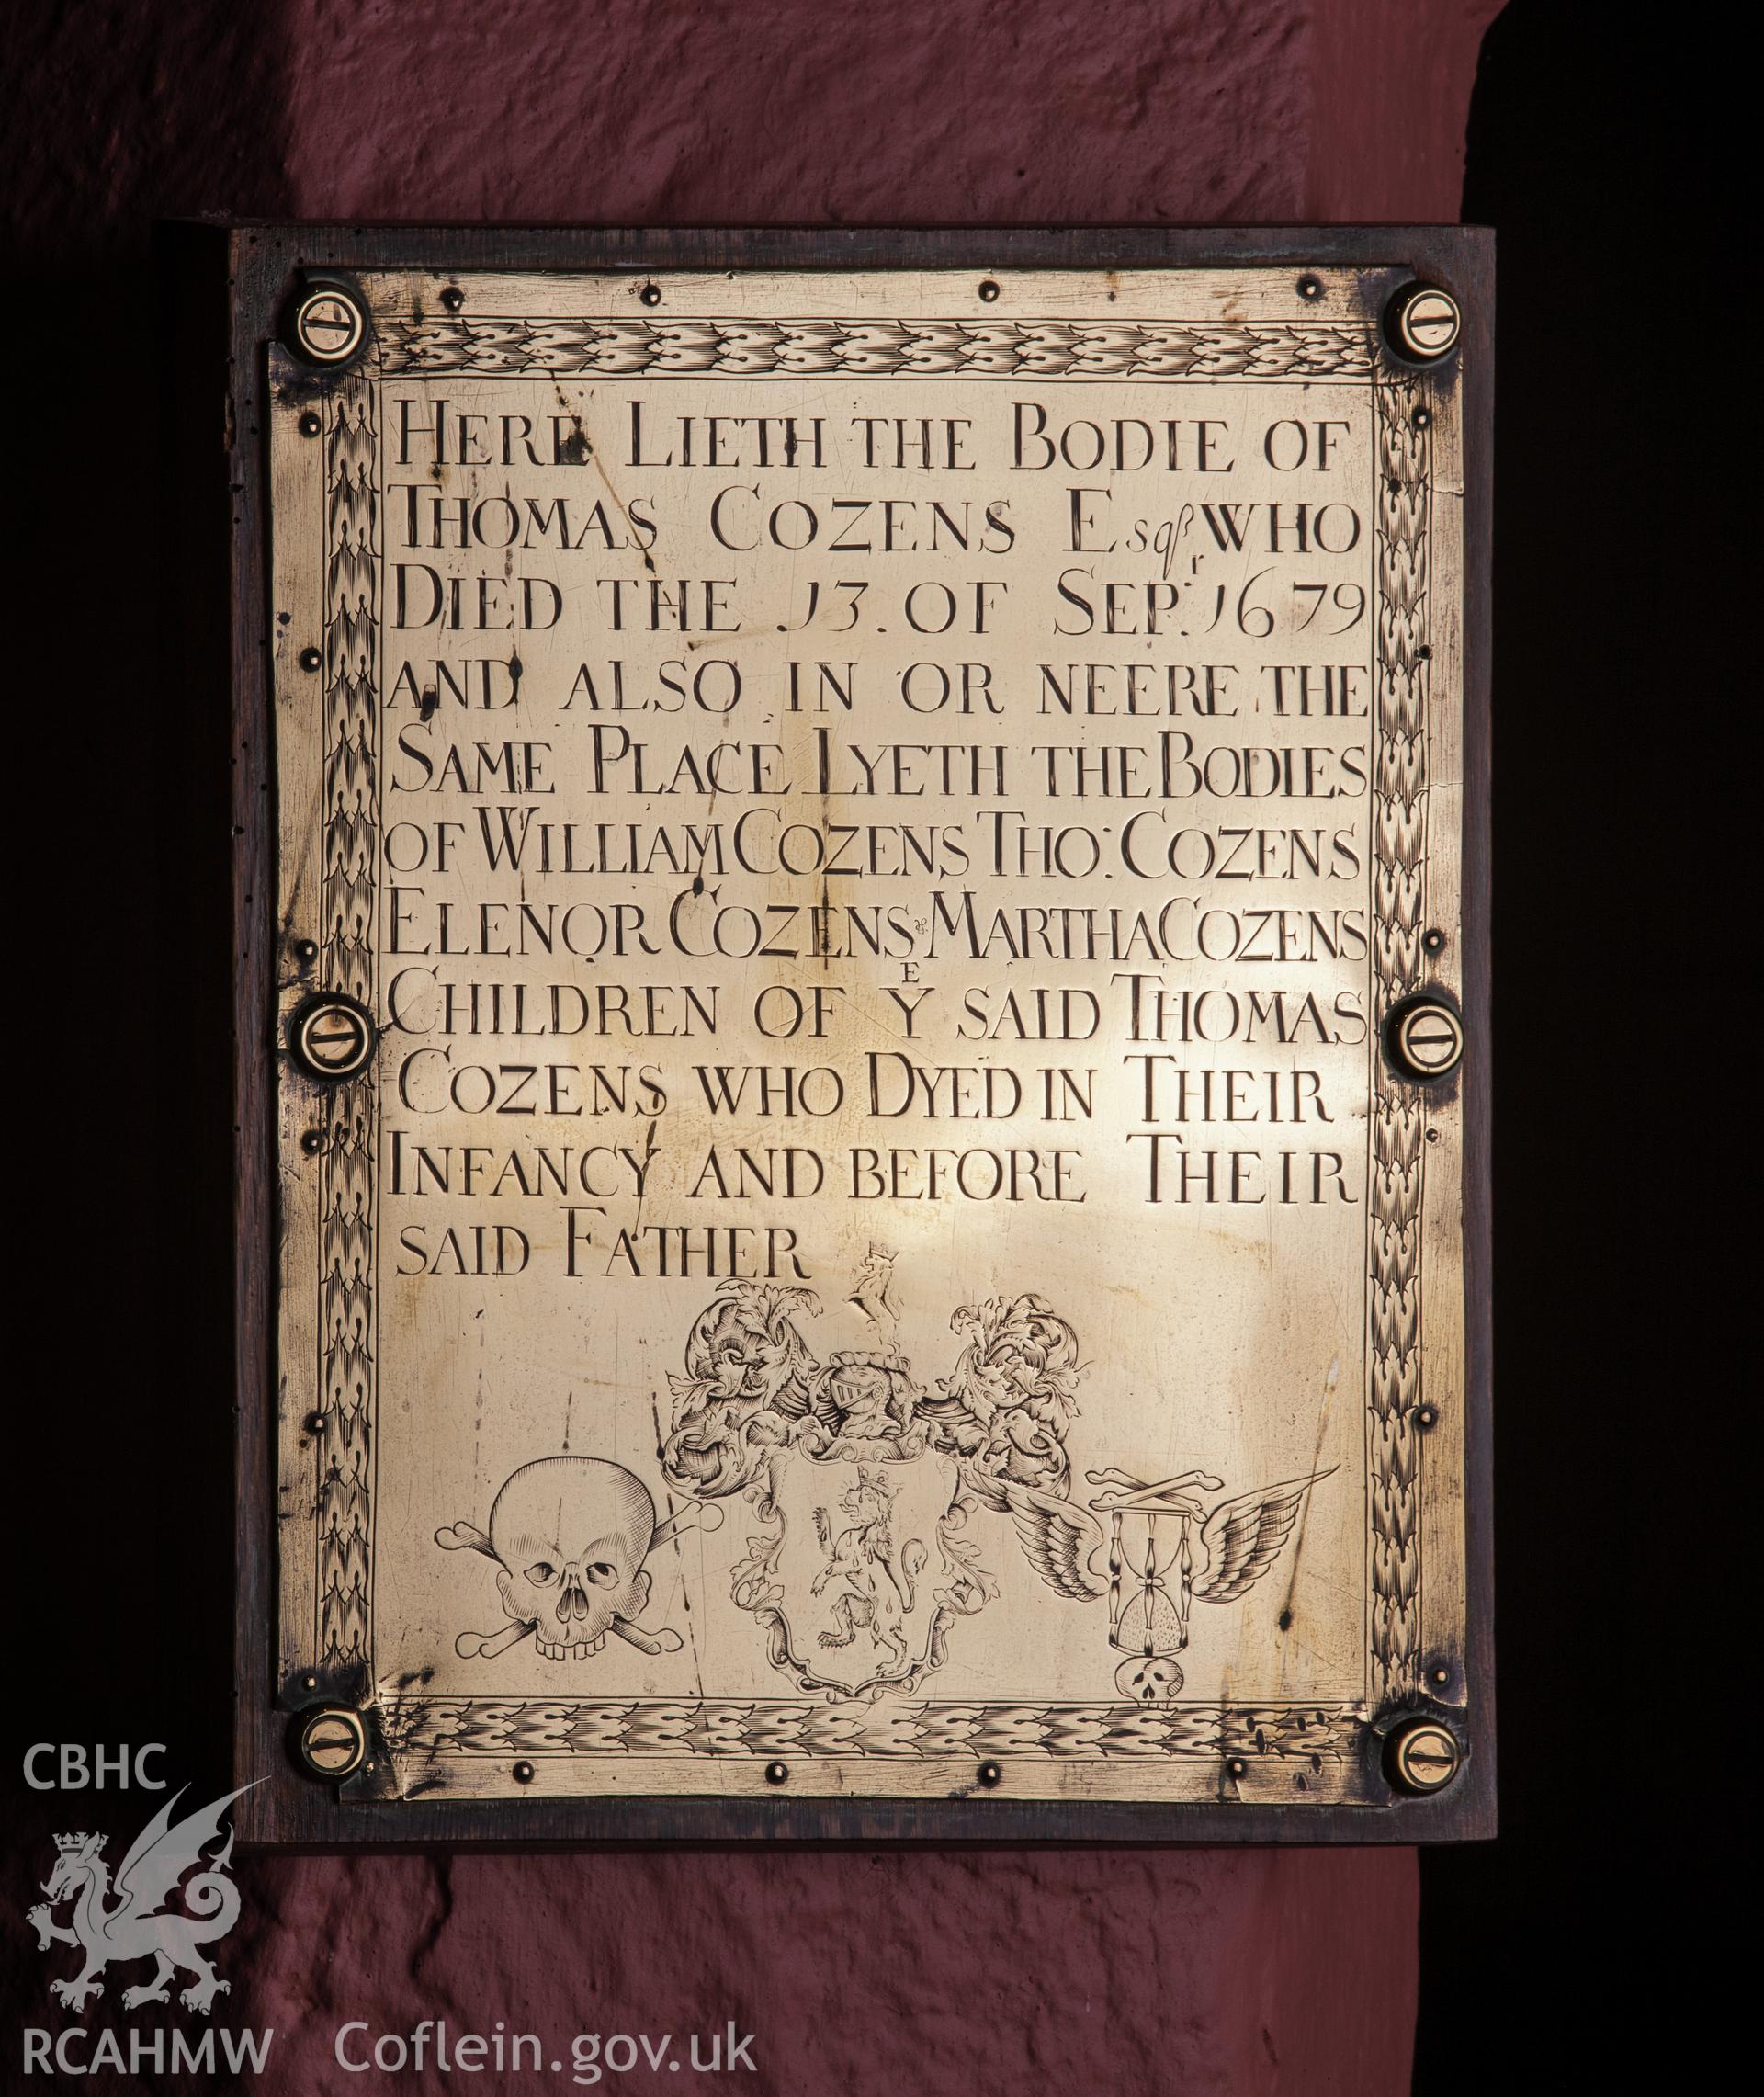 HERE LIETH THE BODIE OF
THOMAS COZENS Esqr WHO
DIED THE 13. OF SEP.r 1679
AND ALSO IN OR NEERE THE
SAME PLACE LYETH THE BODIES
OF WILLIAM COZENS THO: COZENS
ELENOR COZENS & MARTHA COZENS
CHILDREN OF YE SAID THOMAS
COZENS WHO DYED IN THEIR
INFANCY AND BEFORE THEIR
SAID FATHER
CBHC
RCAHMW Coflein.gov.uk